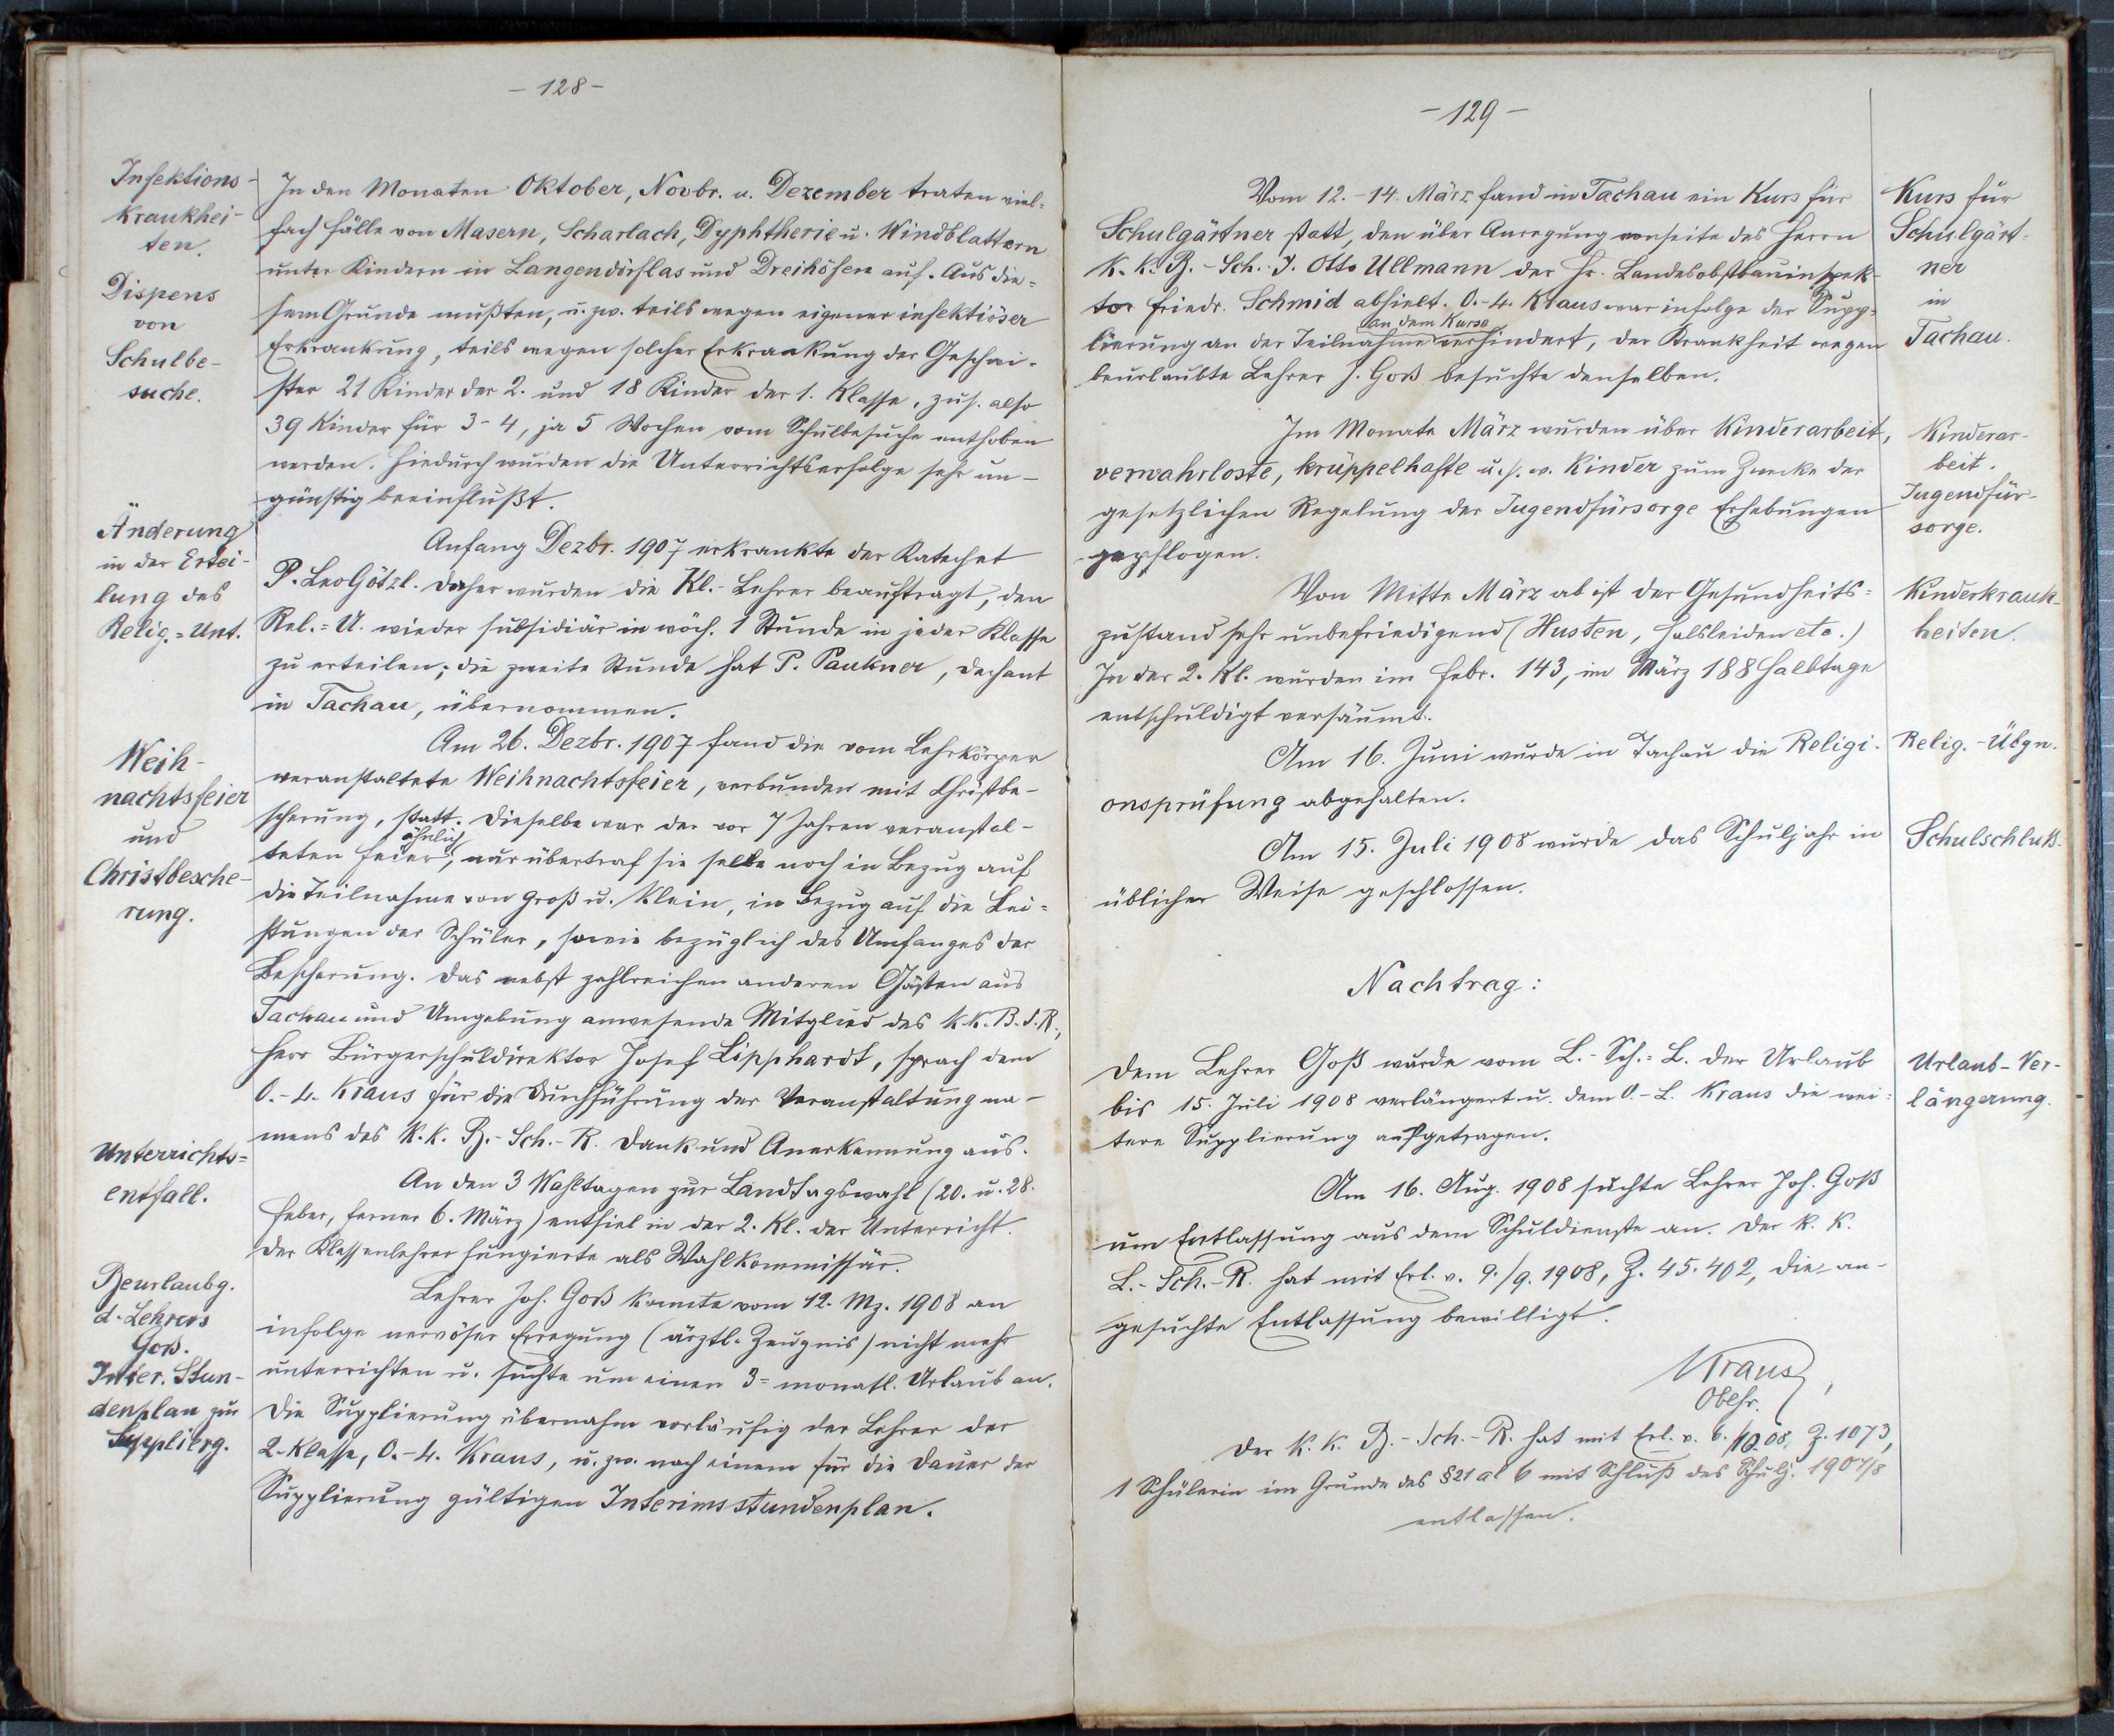 - 128 -
Infektions-
krankhei-
ten.
Dispens
von
Schulbe-
suche.
In den Monaten Oktober, Novbr. u. Dezember traten viel-
fach Fälle von Masern, Scharlach, Dyphtherie u. Windblattern
unter Kindern in Langendörflas und Dreihöfen auf. Aus die-
sem Grunde mußten, u. zw. teils wegen eigener infektiöser
Erkrankung, teils wegen solcher Erkrankung der Geschwi-
ster 21 Kinder der 2. und 18 Kinder der 1. Klasse, zus. also
39 Kinder für 3-4, ja 5 Wochen vom Schulbesuche enthoben
werden. Hiedurch wurden die Unterrichtserfolge sehr un-
günstig beeinflußt.
Änderung
in der Ertei-
lung des
Relig.=Unt.
Anfang Dezbr. 1907 erkrankte der Katechet
P. Leo Götzl. Daher wurden die Kl.-Lehrer beauftragt, den
Rel.=U. wieder subsidiär in wöch. 1 Stunde in jeder Klasse
zu erteilen; die zweite Stunde hat P. Paukner, Dechant
in Tachau, übernommen.
Weih-
nachtsfeier
und
Christbesche-
rung.
Am 26. Dezbr. 1907 fand die vom Lehrkörper
veranstaltete Weihnachtsfeier, verbunden mit Christbe-
scherung, statt. Dieselbe war der vor 7 Jahren veranstal-
teten Feier ähnlich, nur übertraf sie selbe noch in Bezug auf
die Teilnahme von Groß u. Klein, in Bezug auf die Lei-
stungen der Schüler, sowie bezüglich des Umfanges der
Bescherung. Das nebst zahlreichen anderen Gästen aus
Tachau und Umgebung anwesende Mitglied des k.k. B.S.R.,
Herr Bürgerschuldirektor Josef Lipphardt, sprach dem
O.-L. Kraus für die Durchführung der Veranstaltung na-
mens des k.k. B.-Sch.-R. Dank und Anerkennung aus.
Unterrichts=
entfall.
An den 3 Wahltagen zur Landtagswahl (20. u. 28.
Feber, ferner 6. März) entfiel in der 2. Kl. der Unterricht.
Der Klassenlehrer fungierte als Wahlkommissär.
Beurlaubg.
d. Lehrers
Goß.
Inter. Stun-
denplan zur
Supplierg.
Lehrer Joh. Goß konnte vom 12. Mz. 1908 an
infolge nervöser Erregung (ärztl. Zeugnis) nicht mehr
unterrichten u. suchte um einen 3=monatl. Urlaub an.
Die Supplierung übernahm vorläufig der Lehrer der
2. Klasse, O.-L. Kraus, u. zw. nach einem für die Dauer der
Supplierung gültigen Interimsstundenplan.
- 129 -
Vom 12.-14. März fand in Tachau ein Kurs für
Schulgärtner statt, den über Anregung vonseite des Herrn
k.k. B.-Sch.-I. Otto Ullmann der Hr. Landesobstbauinspek-
tor Friedr. Schmid abhielt. O.-L. Kraus war infolge der Supp-
lierung an der Teilnahme an dem Kurse verhindert, der Krankheit wegen
beurlaubte Lehrer J. Goß besuchte denselben.
Kurs für
Schulgärt-
ner
in
Tachau.
Im Monate März wurden über Kinderarbeit,
verwahrloste, krüppelhafte u.s.w. Kinder zum Zwecke der
gesetzlichen Regelung der Jugendfürsorge Erhebungen
gepflogen.
Kinderar-
beit.
Jugendfür-
sorge.
Von Mitte März ab ist der Gesundheits=
zustand sehr unbefriedigend (Husten, Halsleiden etc.)
In der 2. Kl. wurden im Febr. 143, im März 188 Halbtage
entschuldigt versäumt.
Kinderkrank-
heiten.
Am 16. Juni wurde in Tachau die Religi-
onsprüfung abgehalten.
Relig.-Übgn.
Am 15. Juli 1908 wurde das Schuljahr in
üblicher Weise geschlossen.
Schulschluß.
Nachtrag:
Dem Lehrer Goß wurde vom L.-Sch.=L. der Urlaub
bis 15. Juli 1908 verlängert u. dem O.-L. Kraus die wei=
tere Supplierung aufgetragen.
Urlaub-Ver-
längerung.
Am 16. Aug. 1908 suchte Lehrer Joh. Goß
um Entlassung aus dem Schuldienste an. Der k.k.
L.-Sch.-R. hat mit Erl. v. 9./9. 1908, Z. 45.402, die an-
gesuchte Entlassung bewilligt.
Kraus,
Oblhr.
Der k.k. B.-Sch.-R. hat mit Erl. v. 6. Z. 1073,
1 Schülerin im Grunde des § 21 al 6 mit Schluß des Schulj. 1907/8
entlassen.